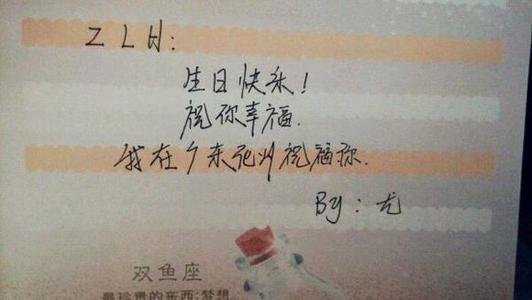 ZLH:
生日快乐!
祝你幸福.
我在广东祝福你.
By:尤
双鱼座
最珍贵的东西:梦想